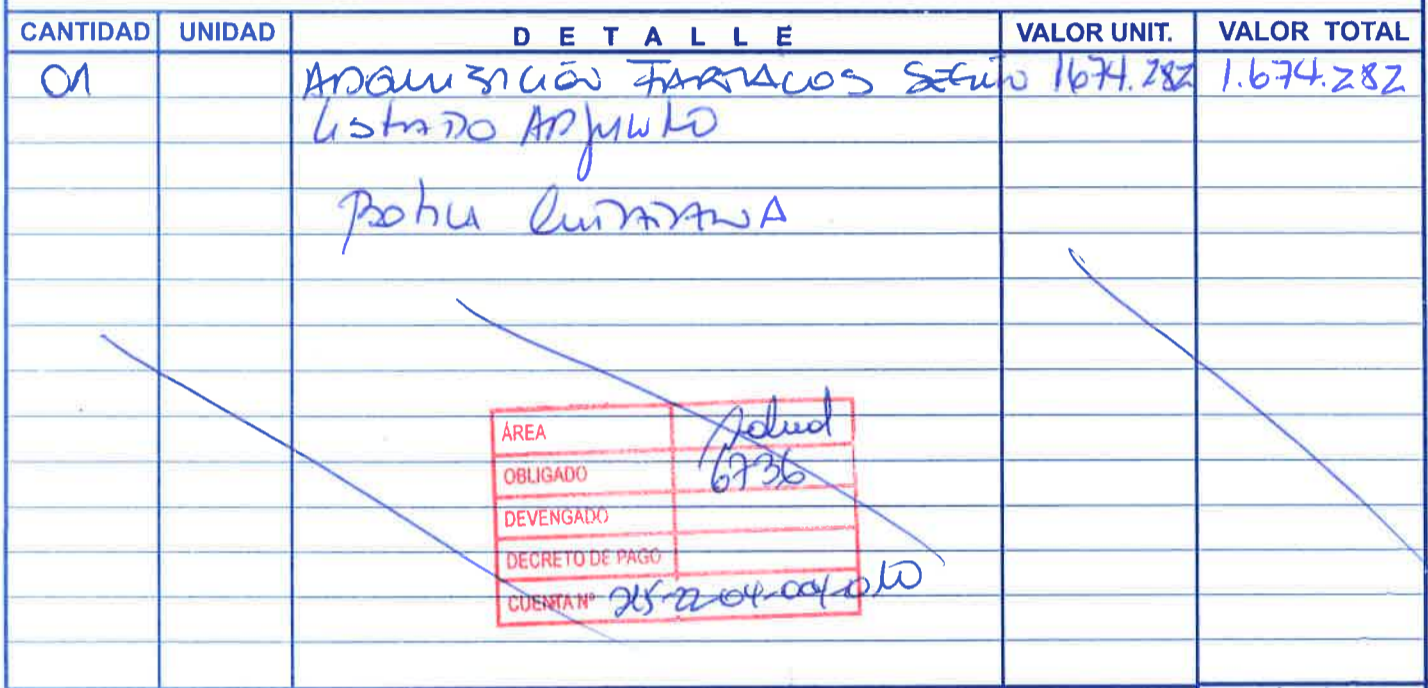 CANTIDAD UNIDAD DETALLE VALOR UNIT. VALOR TOTAL
01 ADQUISICIÓN FARMACOS SEGÚN 1674.282 1.674.282
LISTADO ADJUNTO
Botica CIUDADANA
ÁREA Salud
OBLIGADO 6736
DEVENGADO
DECRETO DE PAGO
CUENTA Nº 215-22-04-004-010